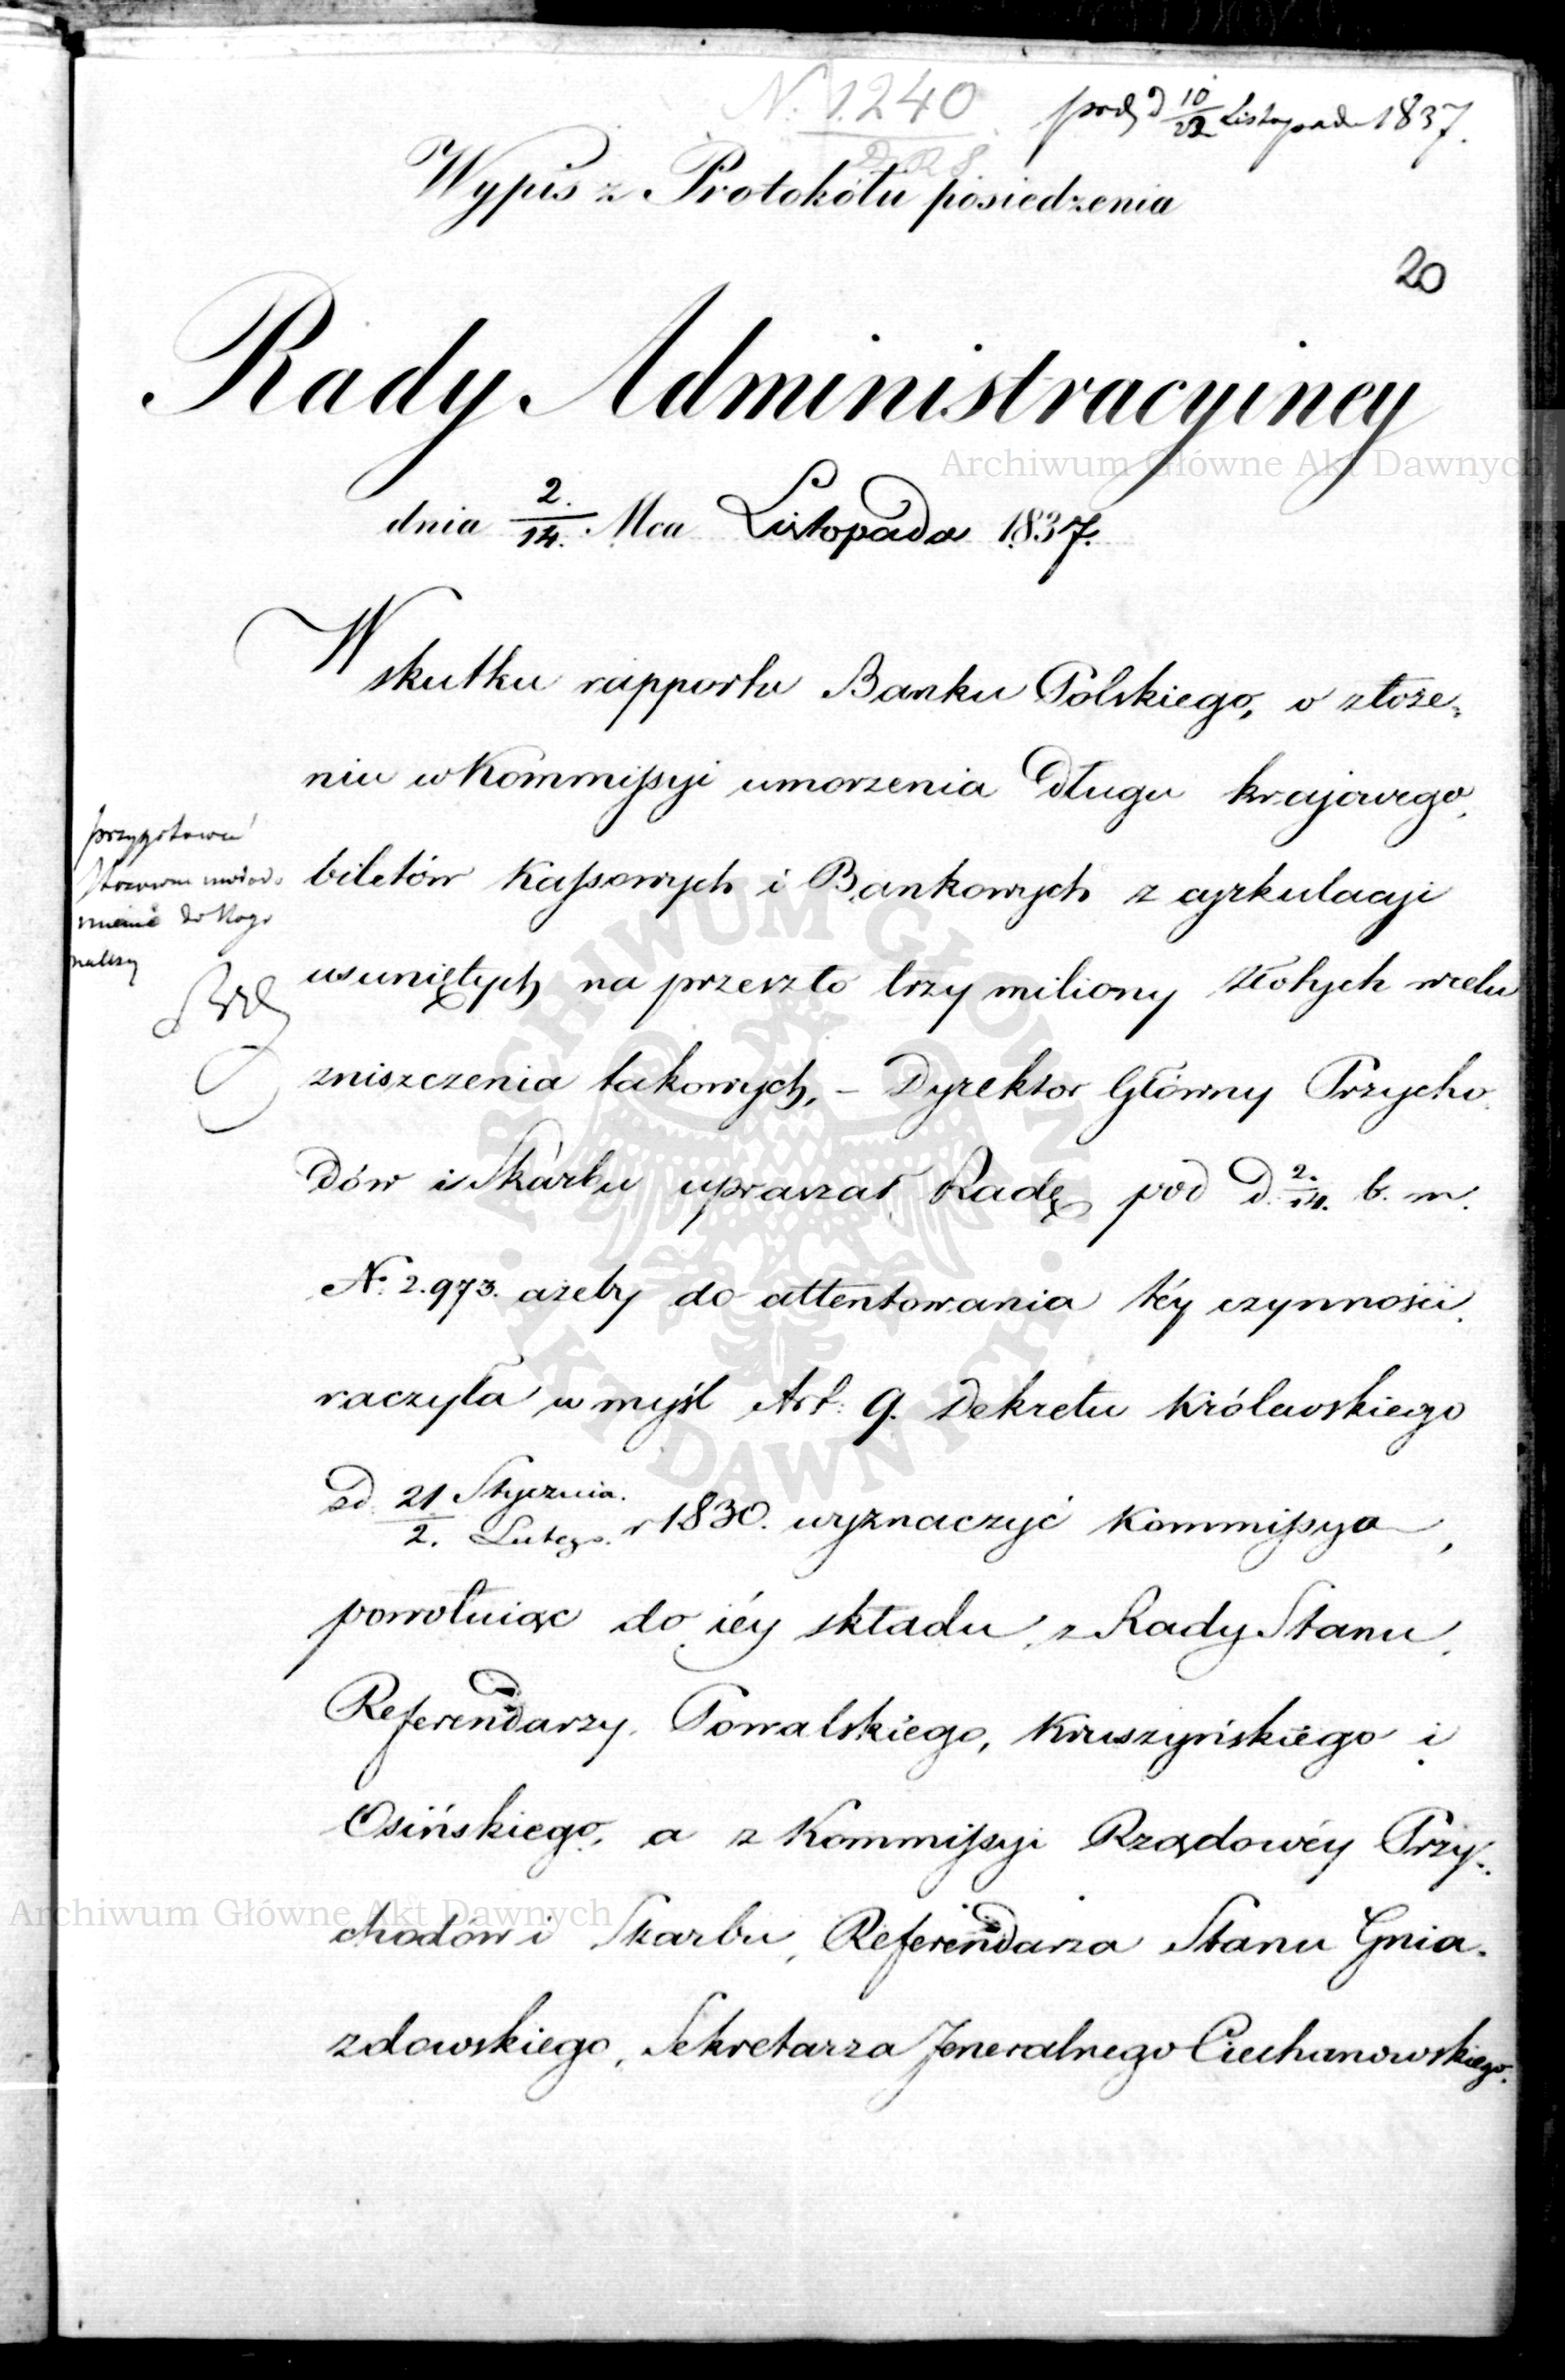 N. 1240
prod. d 10/22 Listopada 1837.
Wypis z Protokółu posiedzenia
20
Rady Administracyiney
Archiwum Główne Akt Dawnych
dnia 2./14. Mca Listopada 1837.
W skutku rapportu Banku Polskiego, o złoże„
niu w Kommissyi umorzenia długu krajowego,
biletów Kassowych i Bankowych z cyrkulacyi
usuniętych na przeszło trzy miliony złotych w celu
zniszczenia takowych, – Dyrektor Główny Przycho„
dów i Skarbu upraszał Radę pod d. 2./14. b. m.
N. 2.973. ażeby do attentowania téy czynności
raczyła w myśl Art: 9. Dekretu Królewskiego
z d. 21 Stycznia./2. Lutego. r 1830. wyznaczyć Kommissya,
powołuiąc do iéy składu, z Rady Stanu,
Referendarzy, Powalskiego, Kruszyńskiego i
Osińskiego, a z Kommissyi Rządowéy Przy„
chodów i Skarbu, Referendarza Stanu Gnia„
zdowskiego, Sekretarza Jeneralnego Ciechanowskiego.
przygotować
stosowne uwiado
mienie do kogo
należy
ARCHIWUM GŁÓWNE AKT DAWNYCH
Archiwum Główne Akt Dawnych